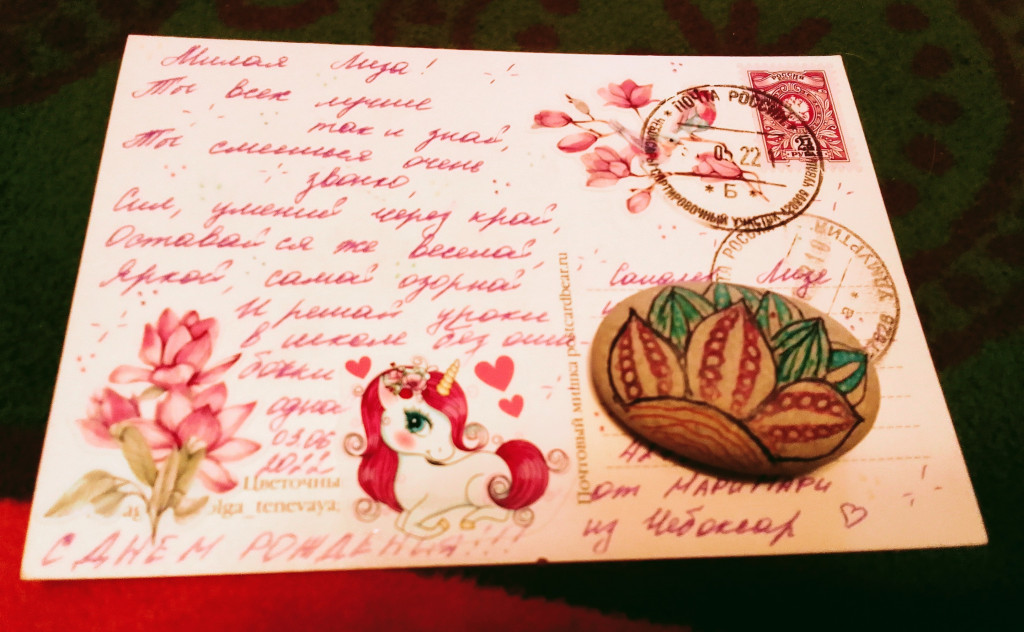 Милая Лиза!
Ты всех лучше
так и знай,
Ты смеешься очень
звонко,
Сил, умений через край,
Оставайся же веселой,
Яркой, самой озорной
И решай уроки
в школе без оши
бочки
одна
03.06
2022
Цветочны
olga_tenevaya
С ДНЕМ РОЖДЕНИЯ!!!
Почтовый мишка postcardbear.ru
ПОЧТА РОССИИ
05 22
* Б *
РОССИЯ
РОССИИ
УДМУРТИЯ
Лизе
от МАРИМАРИ
из Чебоксар